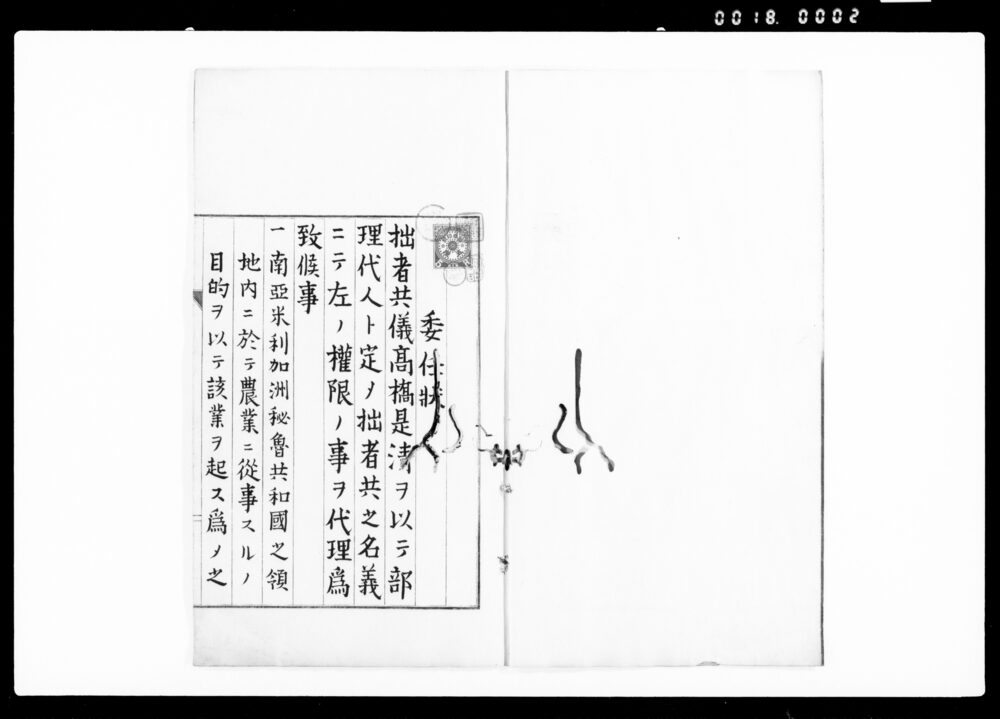 0018. 0002
委任狀
拙者共儀高橋是清ヲ以テ部
理代人ト定メ拙者共之名義
ニテ左ノ權限ノ事ヲ代理爲
致候事
一南亞米利加洲秘魯共和國之領
地内ニ於テ農業ニ從事スルノ
目的ヲ以テ該業ヲ起ス爲メ之